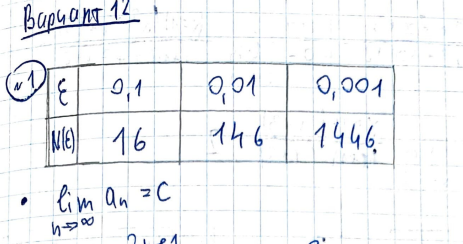 Вариант 12
№1
ε 0,1 0,01 0,001
N(ε) 16 146 1446
• lim aₙ = C
n→∞